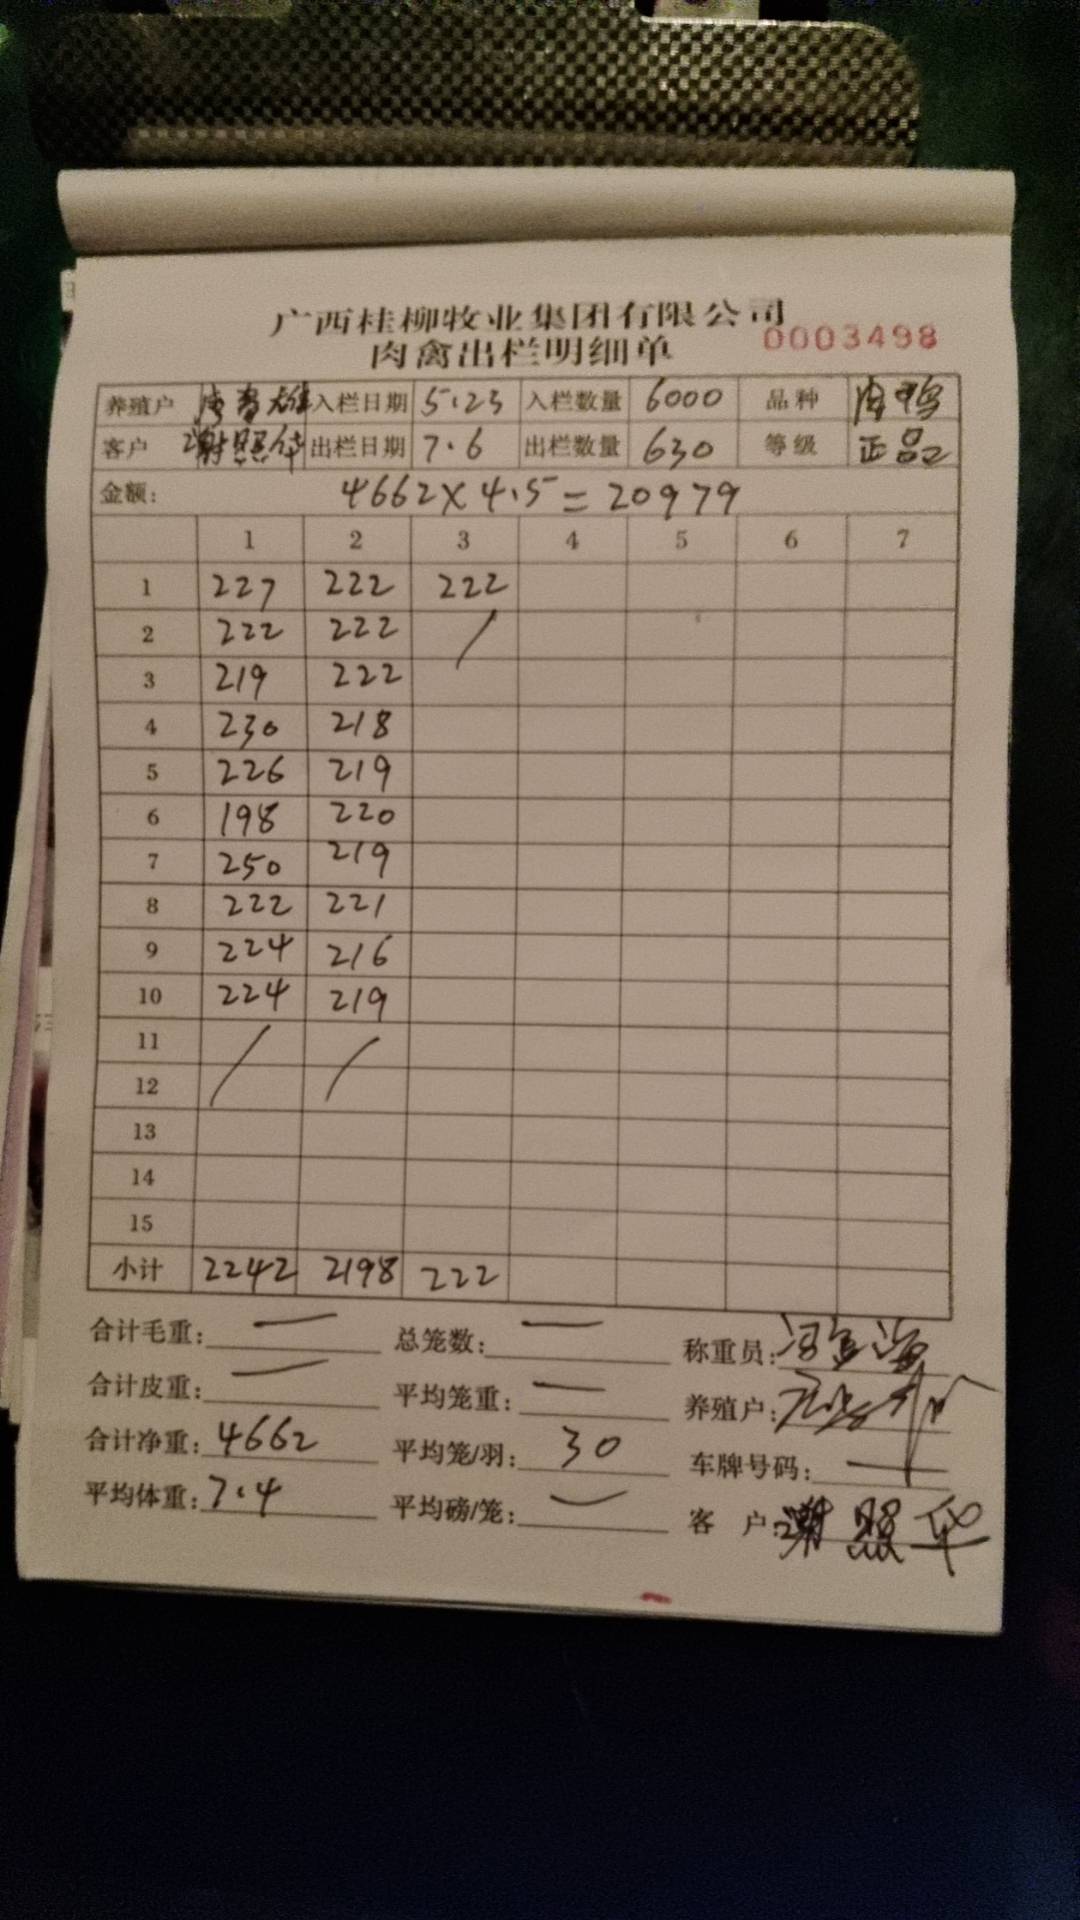 广西桂柳牧业集团有限公司
肉禽出栏明细单 0003498
养殖户 入栏日期 5.23 入栏数量 6000 品种 肉鸭
客户 谢照华 出栏日期 7.6 出栏数量 630 等级 正品
金额: 4662×4.5=20979
1 2 3 4 5 6 7
1 227 222 222
2 222 222 /
3 219 222
4 230 218
5 226 219
6 198 220
7 250 219
8 222 221
9 224 216
10 224 219
11 / /
12
13
14
15
小计 2242 2198 222
合计毛重: — 总笼数: — 称重员:
合计皮重: — 平均笼重: — 养殖户:
合计净重: 4662 平均笼/羽: 30 车牌号码: —
平均体重: 7.4 平均磅/笼: — 客 户: 谢照华